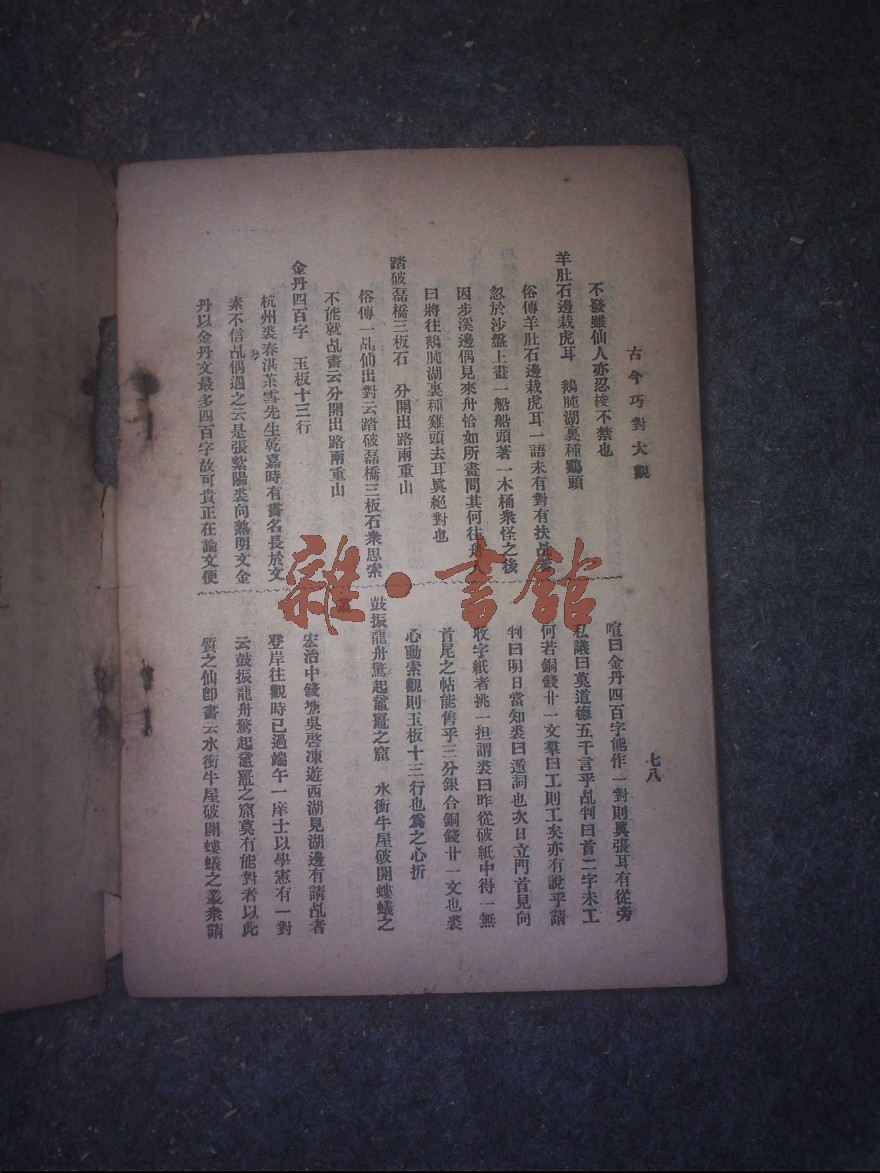 古今巧對大觀
七八
不發雖仙人亦忍悛不禁也
羊肚石邊栽虎耳　鵝肫湖裏種鷄頭
俗傳羊肚石邊栽虎耳一語未有對有扶乩者
忽於沙盤上畫一船船頭著一木桶衆怪之後
因步溪邊偶見來舟恰如所畫問其何往舟人
曰將往鵝肫湖裏種雞頭去耳眞絕對也
踏破磊橋三板石　分開出路兩重山
俗傳一乩仙出對云踏破磊橋三板石衆思索
不能就乩書云分開出路兩重山
金丹四百字　玉板十三行
杭州裘春淇茶雪先生乾嘉時有書名長於文
素不信乩偶過之云是張紫陽裘向熟明文金
丹以金丹文最多四百字故可貴正在論文便
喧曰金丹四百字能作一對則眞張耳有從旁
私議曰莫道德五千言乎乩判曰首二字未工
何若銅錢廿一文羣曰工則工矣亦有說乎請
判曰明日當知裘曰遁詞也次日立門首見向
收字紙者挑一担謂裘曰昨從破紙中得一無
首尾之帖能售乎三分銀合銅錢廿一文也裘
心動索觀則玉板十三行也爲之心折
鼓振龍舟驚起黿鼉之窟　水衝牛屋破開螻蟻之
宏治中錢塘吳啓凍遊西湖見湖邊有請乩者
登岸往觀時已過端午一庠士以學憲有一對
云鼓振龍舟驚起黿鼉之窟莫有能對者以此
質之仙卽書云水衝牛屋破開螻蟻之叢衆請
雜·書館